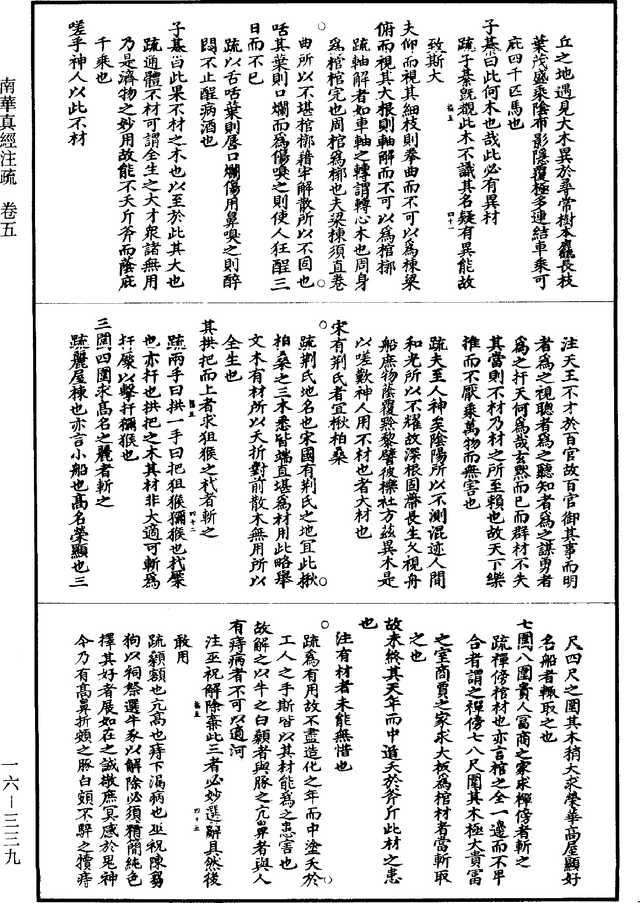 南華真經注疏　卷五
丘之地遇見大木異於尋常樹本麤長枝
葉茂盛乘陰布影隱覆極多連結車乘可
庇四千匹馬也
子綦曰此何木也哉此必有異材
疏子綦既觀此木不識其名疑有異能故
致斯大
夫仰而視其細枝則拳曲而不可以為棟梁
俯而視其大根則軸解而不可以為棺槨
疏軸解者如車軸之轉謂轉心木也周身
為棺棺完也周棺為槨也夫梁棟須直拳
曲所以不堪棺槨藉牢解散所以不固也
咶其葉則口爛而為傷嗅之則使人狂酲三
日而不已
疏以舌咶葉則脣口爛傷用鼻嗅之則醉
悶不止酲病酒也
子綦曰此果不材之木也以至於此其大也
疏通體不材可謂全生之大才衆諸無用
乃是濟物之妙用故能不夭斤斧而蔭庇
千乘也
嗟乎神人以此不材
注天王不才於百官故百官御其事而明
者為之視聰者為之聽知者為之謀勇者
為之扞夫何為哉玄默而已而群材不失
其當則不材乃材之所至賴也故天下樂
推而不厭乘萬物而無害也
疏夫至人神矣陰陽所以不測混迹人間
和光所以不耀故深根固蔕長生久視舟
船庶物蔭覆黔黎譬彼櫟社方茲異木是
以嗟歎神人用不材也者大材也
宋有荆氏者宜楸柏桑
疏荆氏地名也宋國有荆氏之地宜此楸
柏桑之三木悉皆端直堪為材用此略舉
文木有材所以夭折對前散木無用所以
全生也
其拱把而上者求狙猴之杙者斬之
疏兩手曰拱一手曰把狙猴獼猴也杙橜
也亦杆也拱把之木其材非大適可斬為
杆橜以擊扞獼猴也
三圍四圍求高名之麗者斬之
疏麗屋棟也亦言小船也高名榮顯也三
尺四尺之圍其木稍大求榮華高屋顯好
名船者輒取之也
七圍八圍貴人富商之家求樿傍者斬之
疏樿傍棺材也亦言棺之全一邊而不卑
合者謂之樿傍七八尺圍其木極大貴富
之室商賈之家求大板為棺材者當斬取
之也
故未終其天年而中道夭於斧斤此材之患
也
注有材者未能無惜也
疏為有用故不盡造化之年而中塗夭於
工人之手斯皆以其材能為之患害也
故解之以牛之白顙者與豚之亢鼻者與人
有痔病者不可以適河
注巫祝解除棄此三者必妙選騂具然後
敢用
疏顙額也亢高也痔下漏病也巫祝陳芻
狗以祠祭選牛豕以解除必須精簡純色
擇其好者展如在之誠敬庶冥感於鬼神
今乃有高鼻折頞之豚白顙不騂之犢痔
一六－三三九